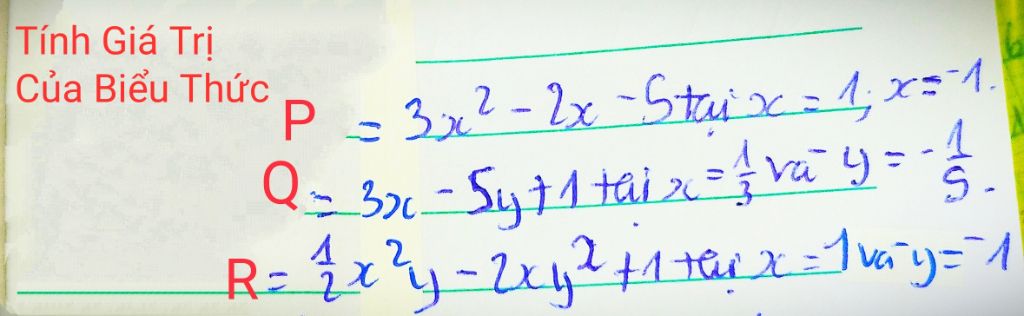 Tính Giá Trị
Của Biểu Thức
P = 3x² - 2x - 5 tại x = 1; x = -1.
Q = 3x - 5y + 1 tại x = 1/3 và y = - 1/5.
R = 1/2 x²y - 2xy² + 1 tại x = 1 và y = -1